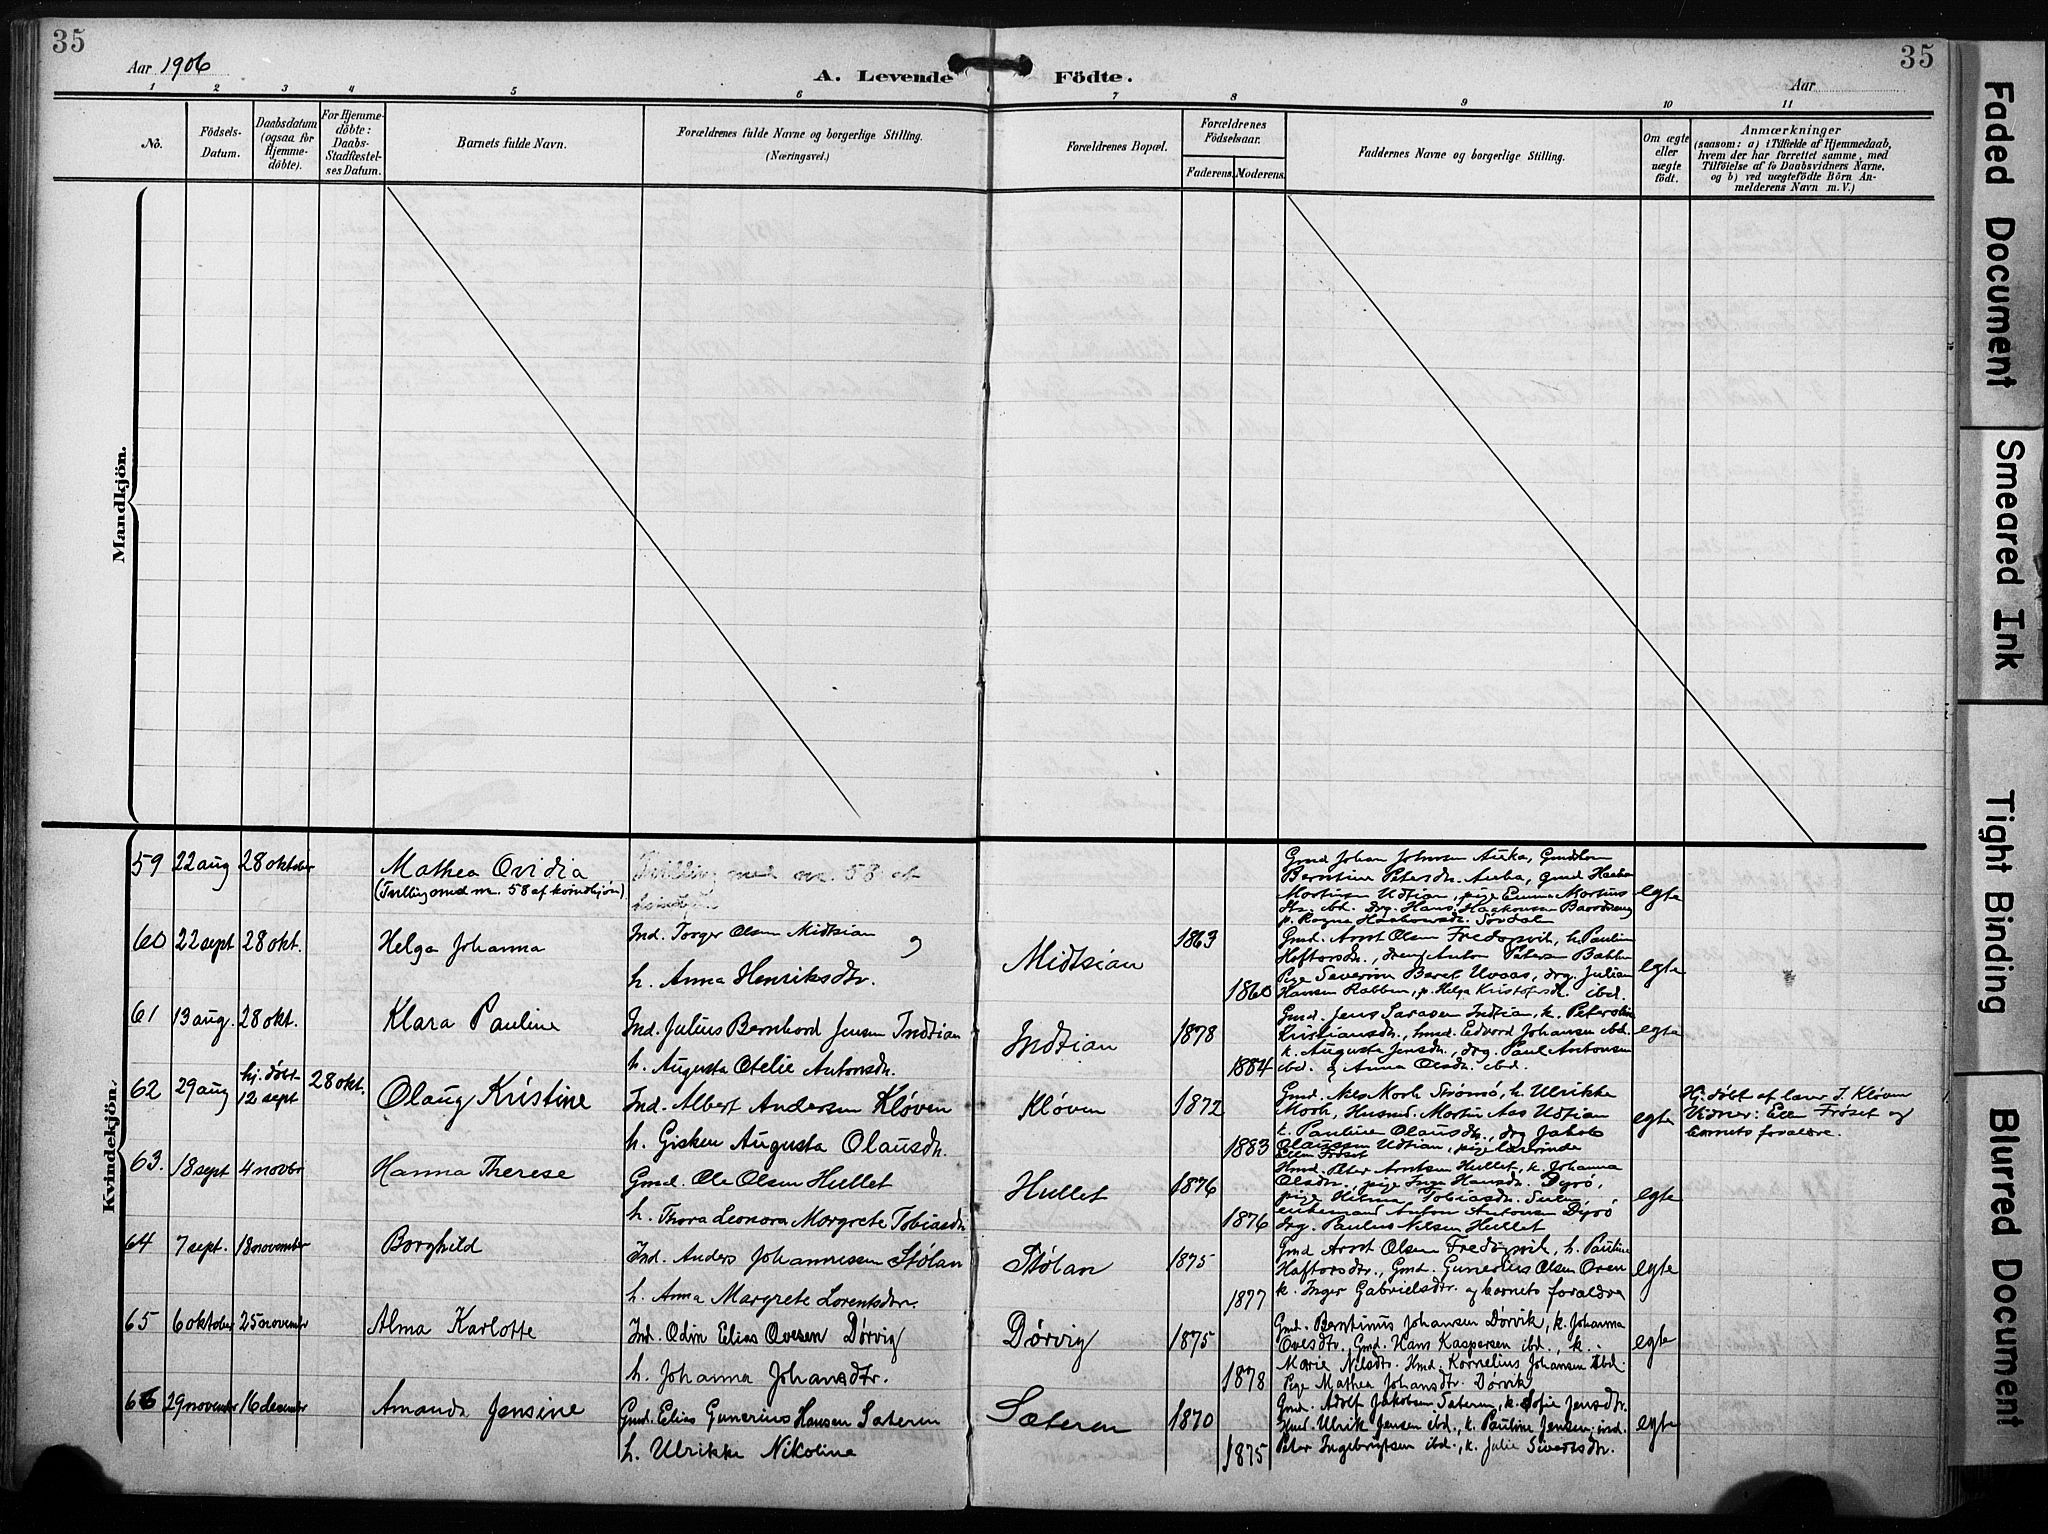 35
Aar 1906
A. Levende Födte.
Aar
35
1 2 3 4 5 6 7 8 9 10 11
No.
Födsels-Datum.
Daabsdatum (ogsaa for Hjemmedöbte).
For Hjemmedöbte: Daabs-Stadfæstelses Datum.
Barnets fulde Navn.
Forældrenes fulde Navne og borgerlige Stilling.
(Næringsvei.)
Forældrenes Bopæl.
Forældrenes Födselsaar.
Faderens. Moderens.
Faddernes Navne og borgerlige Stilling.
Om ægte eller uægte födt.
Anmærkninger
(saasom: a) i Tilfælde af Hjemmedaab, hvem der har forrettet samme, med Tilföielse af to Daabsvidners Navne, og b) ved uægtefödte Börn Anmelderens Navn m. V.)
Mandkjön.
Kvindekjön.
59 22 aug 28 oktober Mathea Ovidia
(Tvilling med nr. 58 af kvindkjøn)
Tvilling med nr. 58 af
Gmd Johan Johnsen Auka,
egte
60 22 sept 28 okt. Helga Johanna
Ind. Torger Olsen Midtsian og
h. Anna Henriksdtr.
Midtsian 1863 1860
Gmd. Arnt Olsen Fredagsvik, h. Pauline
Haftorsdtr., dreng Anton Petersen Bakken
Pige Severine Beret Uvaas, drg. Julian
Hansen Rabben, p. Helga Kristofersdt. ibd.
egte
61 13 aug. 28 okt. Klara Pauline
Ind. Julius Bernhard Jensen Indtian
h. Augusta Otelie Antonsdn.
Indtian 1878 1884
Gmd. Jens Larsen Indtian, k. Petersline
Kristiansdn., hmd. Edvard Johansen ibd.
k. Augusta Jensdn., drg. Paul Antonsen
ibd. og Anna Olsdn. ibd.
egte
62 29 aug hj. døbt 12 sept 28 okt. Olaug Kristine
Ind. Albert Andersen Kløven
h. Gisken Augusta Olausdn.
Kløven 1872 1883
Gmd. Nels Mork Strømsø, h. Ulrikke
Mork, Husmd. Martin Aas Udtian
k. Pauline Olausdn., drg Jakob
Olaussen Udtian, pige lærerinde
Ellen Frøset
egte
Hj. døbt af lærer J. Kløven
Vidner: Ellen Frøset og
barnets forældre.
63. 18 sept 4 novbr Hanna Therese
Gmd. Ole Olsen Hullet
h. Thora Leonora Margrete Tobiasdn
Hullet 1876 1876
Hmd. Peter Arntsen Hullet, k. Johanna
Olsdn., pige Inga Hansdn. Dyrø,
pige Helma Tobiasdn.
Anton Antonsen Dyrø
drg. Paulus Nilsen Hullet
egte
64 7 sept. 18 november Borghild
Ind. Anders Johannessen Stølan
h. Anna Margrete Lorentsdtr.
Stølan 1875 1877
Gmd Arnt Olsen Fredagsvik, h. Pauline
Haftorsdtr., Gmd. Gunerius Olsen Oven
k. Inger Gabrielsdtr. og barnets forældre
egte
65 6 oktober 25 november Alma Karlotte
Ind. Odin Elias Ovesen Dørvig
h. Johanna Johansdtr.
Dørvig 1875 1878
Gmd. Berntinus Johansen Dørvik, k. Johanna
Ovesdtr., Gmd. Hans Kaspersen ibd., k.
Marie Nilsdtr. Hmd. Kornelius Johansen ibd.
Pige Mathea Johansdtr. Dørvik
egte
66 29 november 16 desember Amanda Jensine
Gmd. Elias Gunerius Hansen Sæteren
h. Ulrikke Nikoline
Sæteren 1870 1875
Gmd. Adolf Jakobsen Sæteren, k. Sofie Jensdtr.
Hmd. Ulrik Jensen ibd., k. Pauline Jensen, ind.
Peter Ingebrigtsen ibd., k. Julie Sivertsdtr.
egte
Faded Document
Smeared Ink
Tight Binding
Blurred Document